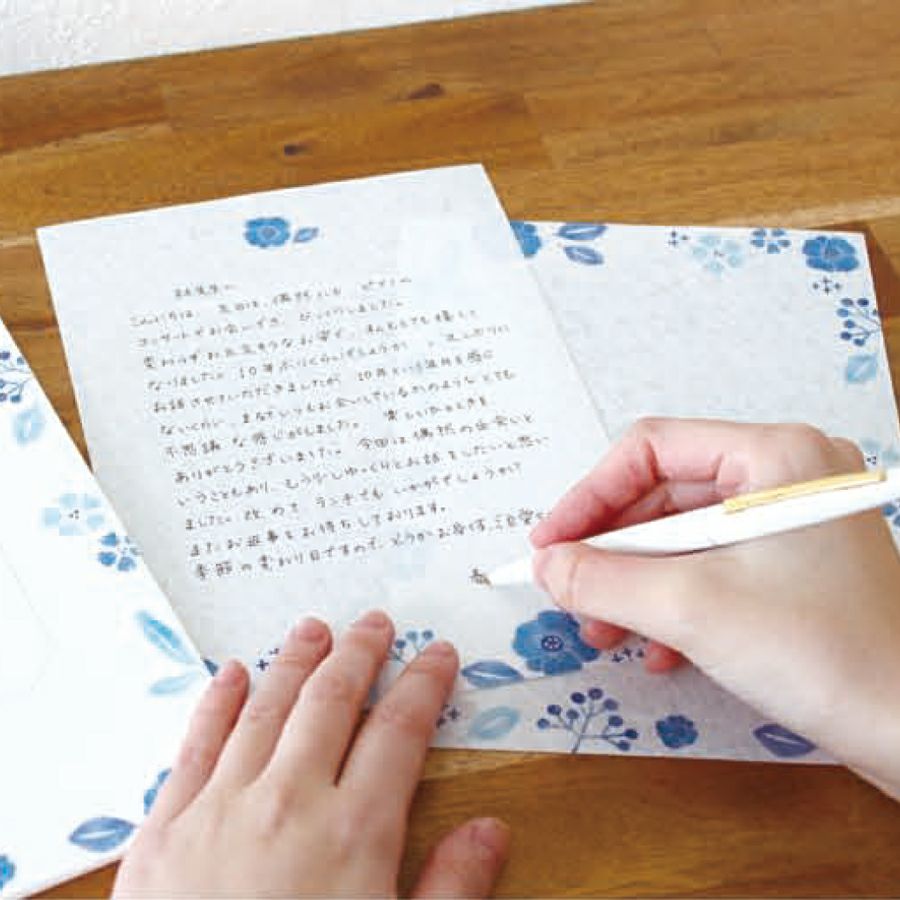 こんにちは。先日は、偶然にも ピアノの
コンサートでお会いでき、びっくりしました。
変わらずお元気そうなお姿で、私もとても嬉しく
なりました。10年ぶりくらいでしょうか
お話させていただきましたが 10年という歳月を感じ
ないくらい、まるでいつもお会いしているかのような とても
不思議 な感じがしました。楽しいひとときを
ありがとうございました。今回は偶然の出会いと
いうこともあり、もう少しゆっくりとお話をしたいと思い
ました。改めて ランチでも いかがでしょうか?
またお返事をお待ちしております。
季節の変わり目ですので、どうかお身体ご自愛